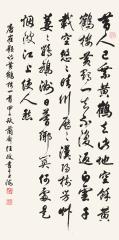 昔人已乘黄鶴去此地空餘黄
鶴樓黄鶴一去不復返白雲千
載空悠悠晴川歷歷漢陽樹芳
草萋萋鸚鵡洲日暮鄉關何處是
煙波江上使人愁
唐崔顥詩黄鶴樓一首